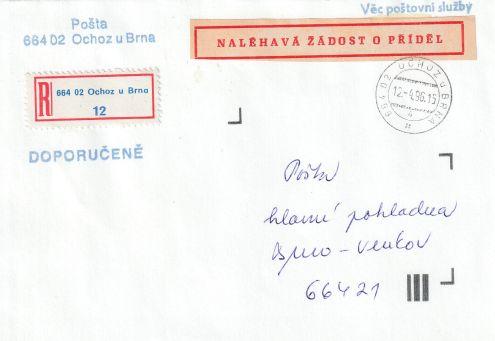 Věc poštovní služby
Pošta
664 02 Ochoz u Brna
NALÉHAVÁ ŽÁDOST O PŘÍDĚL
R 664 02 Ochoz u Brna
12
664 02 OCHOZ u BRNA
12.-4.96.15
a
DOPORUČENĚ
Pošta
hlavní pokladna
Brno-venkov
66421